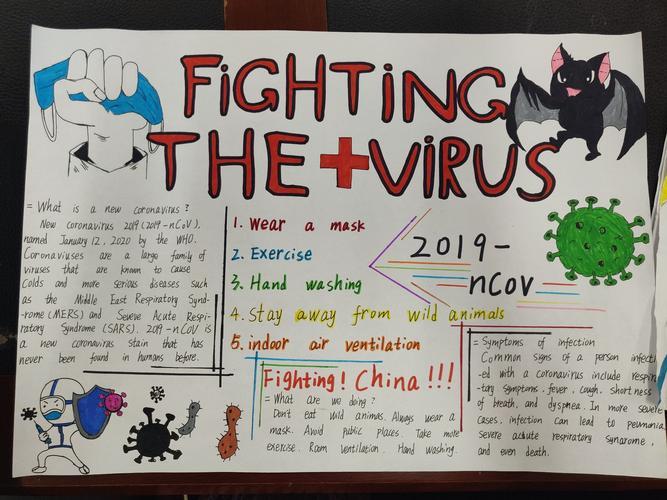 FiGHTiNG
THE + ViRUS
= What is a new coronavirus?
New coronavirus 2019 (2019-nCoV),
named January 12, 2020 by the WHO.
Coronaviuses are a large family of
viruses that are known to cause
Colds and more serious diseases such
as the Middle East Respiratory Synd-
-rome (MERS) and Seveve Acute Respi-
ratory Syndrome (SARS). 2019-nCoV is
a new coronavirus stain that has
never been found in humans before.
1. Wear a mask
2. Exercise
3. Hand washing
4. Stay away from wild animals
5. indoor air ventilation
2019-
nCov
Fighting! China!!!
= What are we doing?
Don't eat wild animas. Always wear a
mask. Avoid public places. Take more
exercise. Room ventilation. Hand washing.
= Symptoms of infection
Common signs of a person infecti
-ed with a coronavirus include respira
-tary symptoms, fever, cough, shortness
of breath, and dyspnea. In more severe
cases, infection can lead to peumania,
Severe acute respiratory synarome,
and even death.